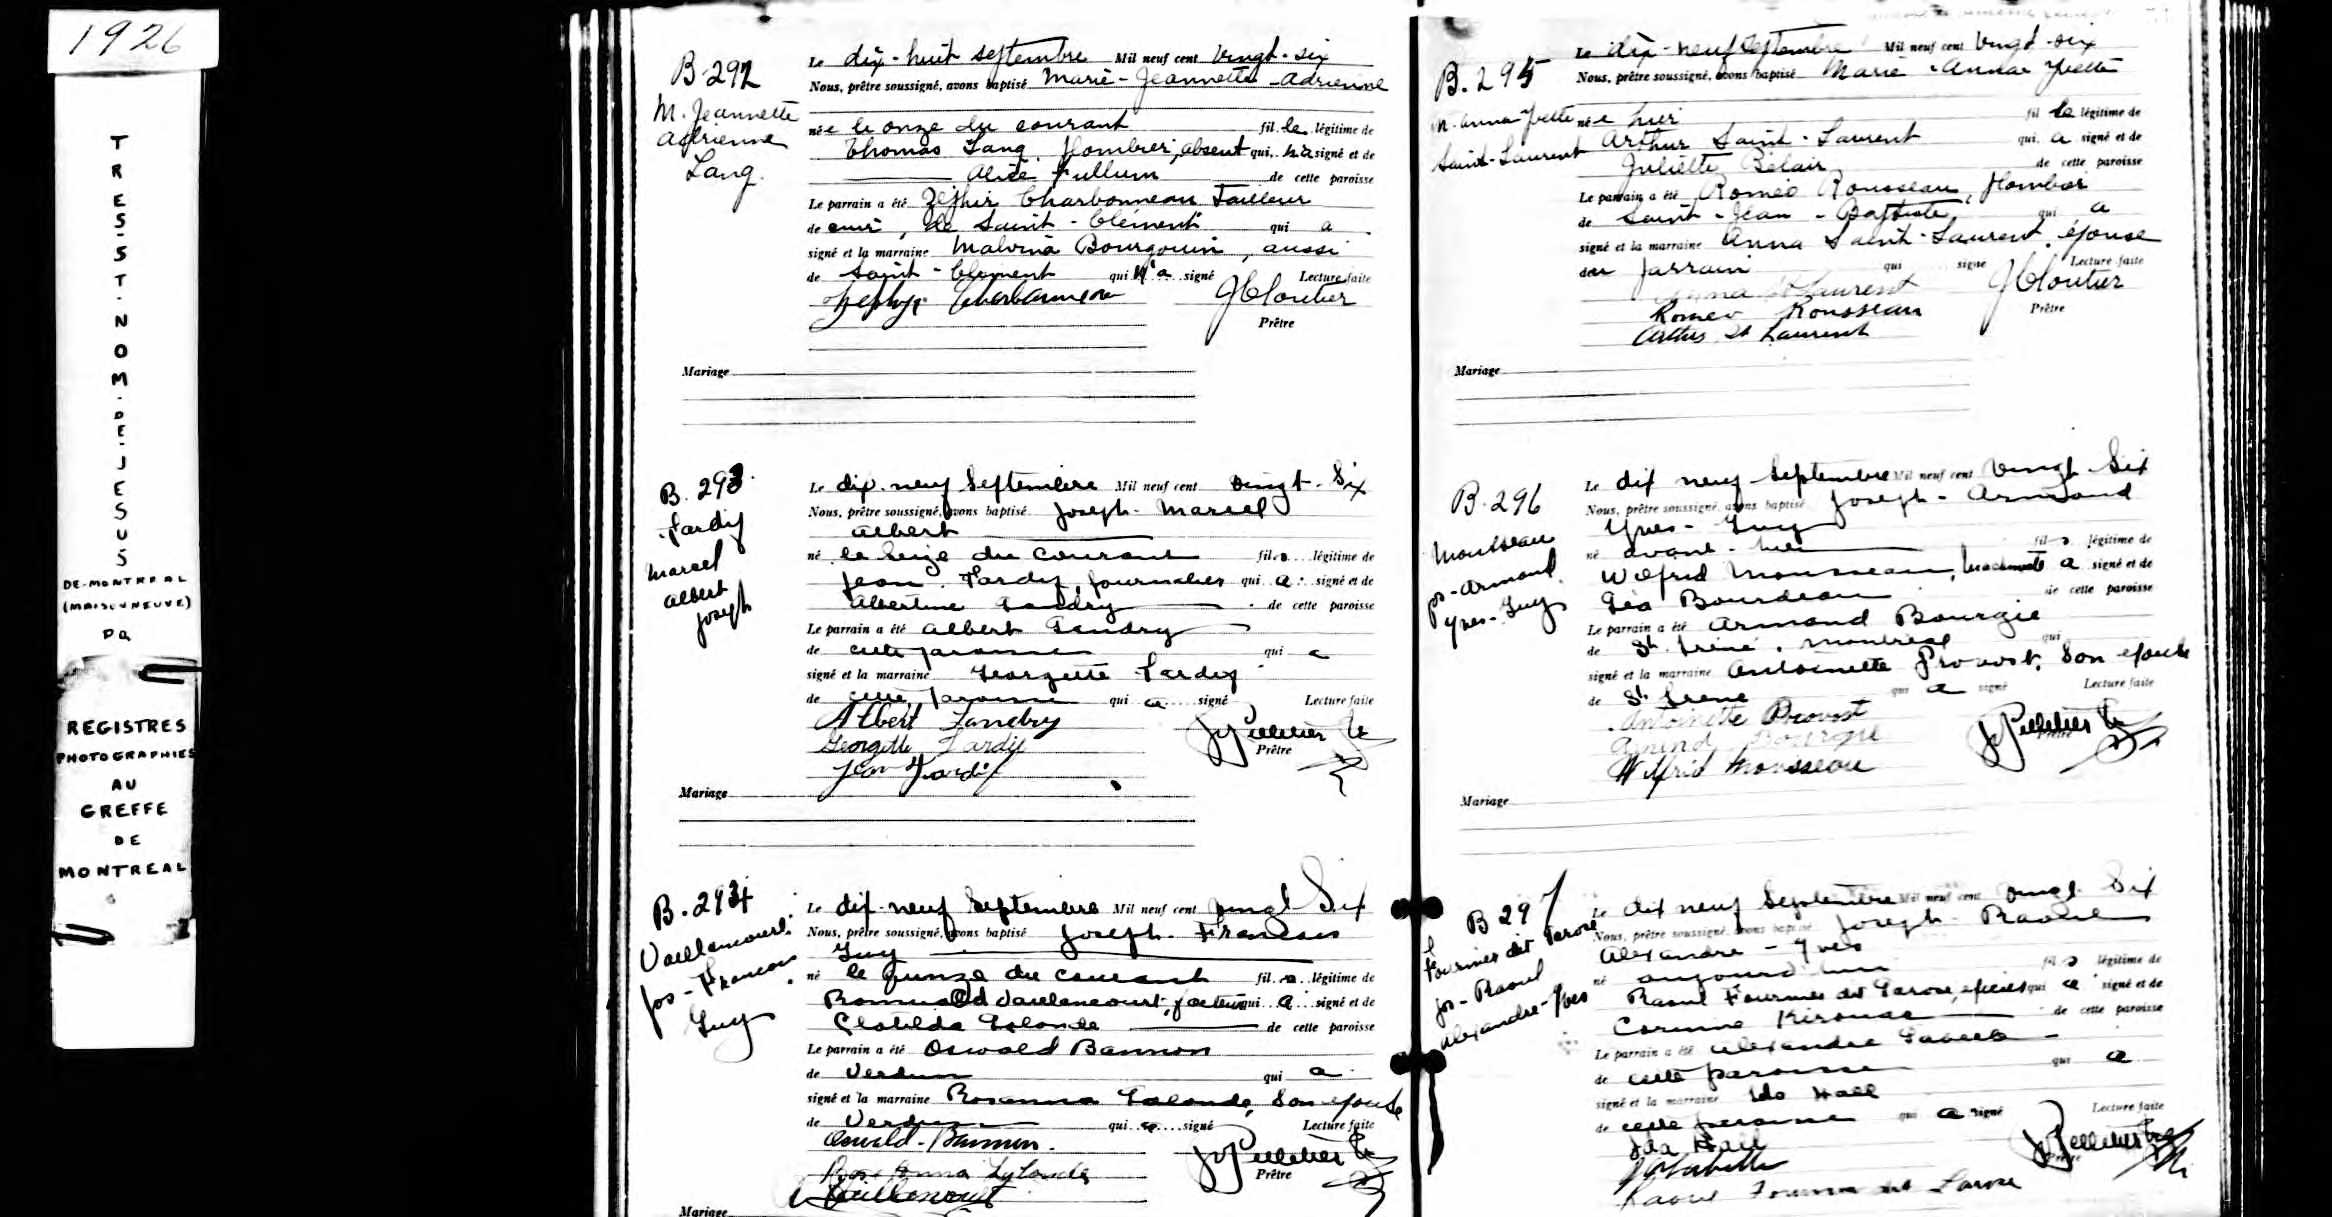 1926
TRES-ST-NOM-DE-JESUS
DE-MONTREAL
(MAISONNEUVE)
PQ
REGISTRES
PHOTOGRAPHIES
AU
GREFFE
DE
MONTREAL
B-292
M. Jeannette
Adrienne
Lang.
Le dix-huit septembre Mil neuf cent vingt-six
Nous, prêtre soussigné, avons baptisé Marie-Jeannette-Adrienne
née le onze du courant fille légitime de
Thomas Lang, absent qui n'a signé et de
Alice Fullum de cette paroisse
Le parrain a été Zéphir Charbonneau Tailleur
de cuir, de Saint-Clément qui a
signé et la marraine Malvina Bourgouin, aussi
de Saint-Clément qui n'a signé Lecture faite
Zephyr Charbonneau JCloutier
Prêtre
Mariage
B. 293
Tardif
Marcel
Albert
Joseph
Le dix-neuf Septembre Mil neuf cent vingt-Six
Nous, prêtre soussigné, avons baptisé Joseph-Marcel
Albert
né le Seize du courant fils légitime de
Jean Tardif, journalier qui a signé et de
Albertine Landry de cette paroisse
Le parrain a été Albert Landry
de cette paroisse qui a
signé et la marraine Georgette Tardif
de cette paroisse qui a signé Lecture faite
Albert Landry
Georgette Tardif JPelletier
Prêtre
Jean Tardif
Mariage
B. 294
Vaillancourt
Jos-Francois
Guy
Le dix-neuf Septembre Mil neuf cent vingt Six
Nous, prêtre soussigné, avons baptisé Joseph-Francois
Guy
né le quinze du courant fils légitime de
Romuald Vaillancourt, facteur qui a signé et de
Clotilda Lalonde de cette paroisse
Le parrain a été Oswald Bannon
de Verdun qui a
signé et la marraine Rosanna Lalonde, Son epouse
de Verdun qui a signé Lecture faite
Oswald-Bannon
JPelletier
Rose Anna Lalonde Prêtre
Vaillancourt
Mariage
B. 295
M. Anna Yvette
Saint-Laurent
Le dix-neuf septembre Mil neuf cent vingt-six
Nous, prêtre soussigné, avons baptisé Marie-Anna Yvette
née hier fille légitime de
Arthur Saint-Laurent qui a signé et de
Juliette Bélair de cette paroisse
Le parrain a été Roméo Rousseau,
de Saint-Jean-Baptiste, qui a
signé et la marraine Anna Saint-Laurent, épouse
du parrain qui signé Lecture faite
Anna St Laurent JCloutier
Romeo Rousseau Prêtre
Arthur St Laurent
Mariage
B. 296
Mousseau
Jos-Armand
Yves-Guy
Le dix neuf Septembre Mil neuf cent Vingt Six
Nous, prêtre soussigné, avons baptisé Joseph-Armand
Yves-Guy
né avant-hier fils légitime de
Wilfrid Mousseau, a signé et de
Léa Bourdeau de cette paroisse
Le parrain a été Armand Bourgie
de St. Irénée, Montréal qui
signé et la marraine Antoinette Provost, Son epouse
de St. Irénée qui a signé Lecture faite
Antoinette Provost
Armand Bourgie JPelletier
Prêtre
Wilfrid Mousseau
Mariage
B 297
Fournier dit Larose
Jos-Raoul
Alexandre-Yves
Le dix neuf Septembre Mil neuf cent vingt Six
Nous, prêtre soussigné, avons baptisé Joseph-Raoul
Alexandre-Yves
né aujourd'hui fils légitime de
Raoul Fournier dit Larose, epicier qui a signé et de
Corinne Kirouac de cette paroisse
Le parrain a été Alexandre
de cette paroisse qui a
signé et la marraine Ida Hall
de cette paroisse qui a signé Lecture faite
Ida Hall
JPelletier
Prêtre
Raoul Fournier dit Larose